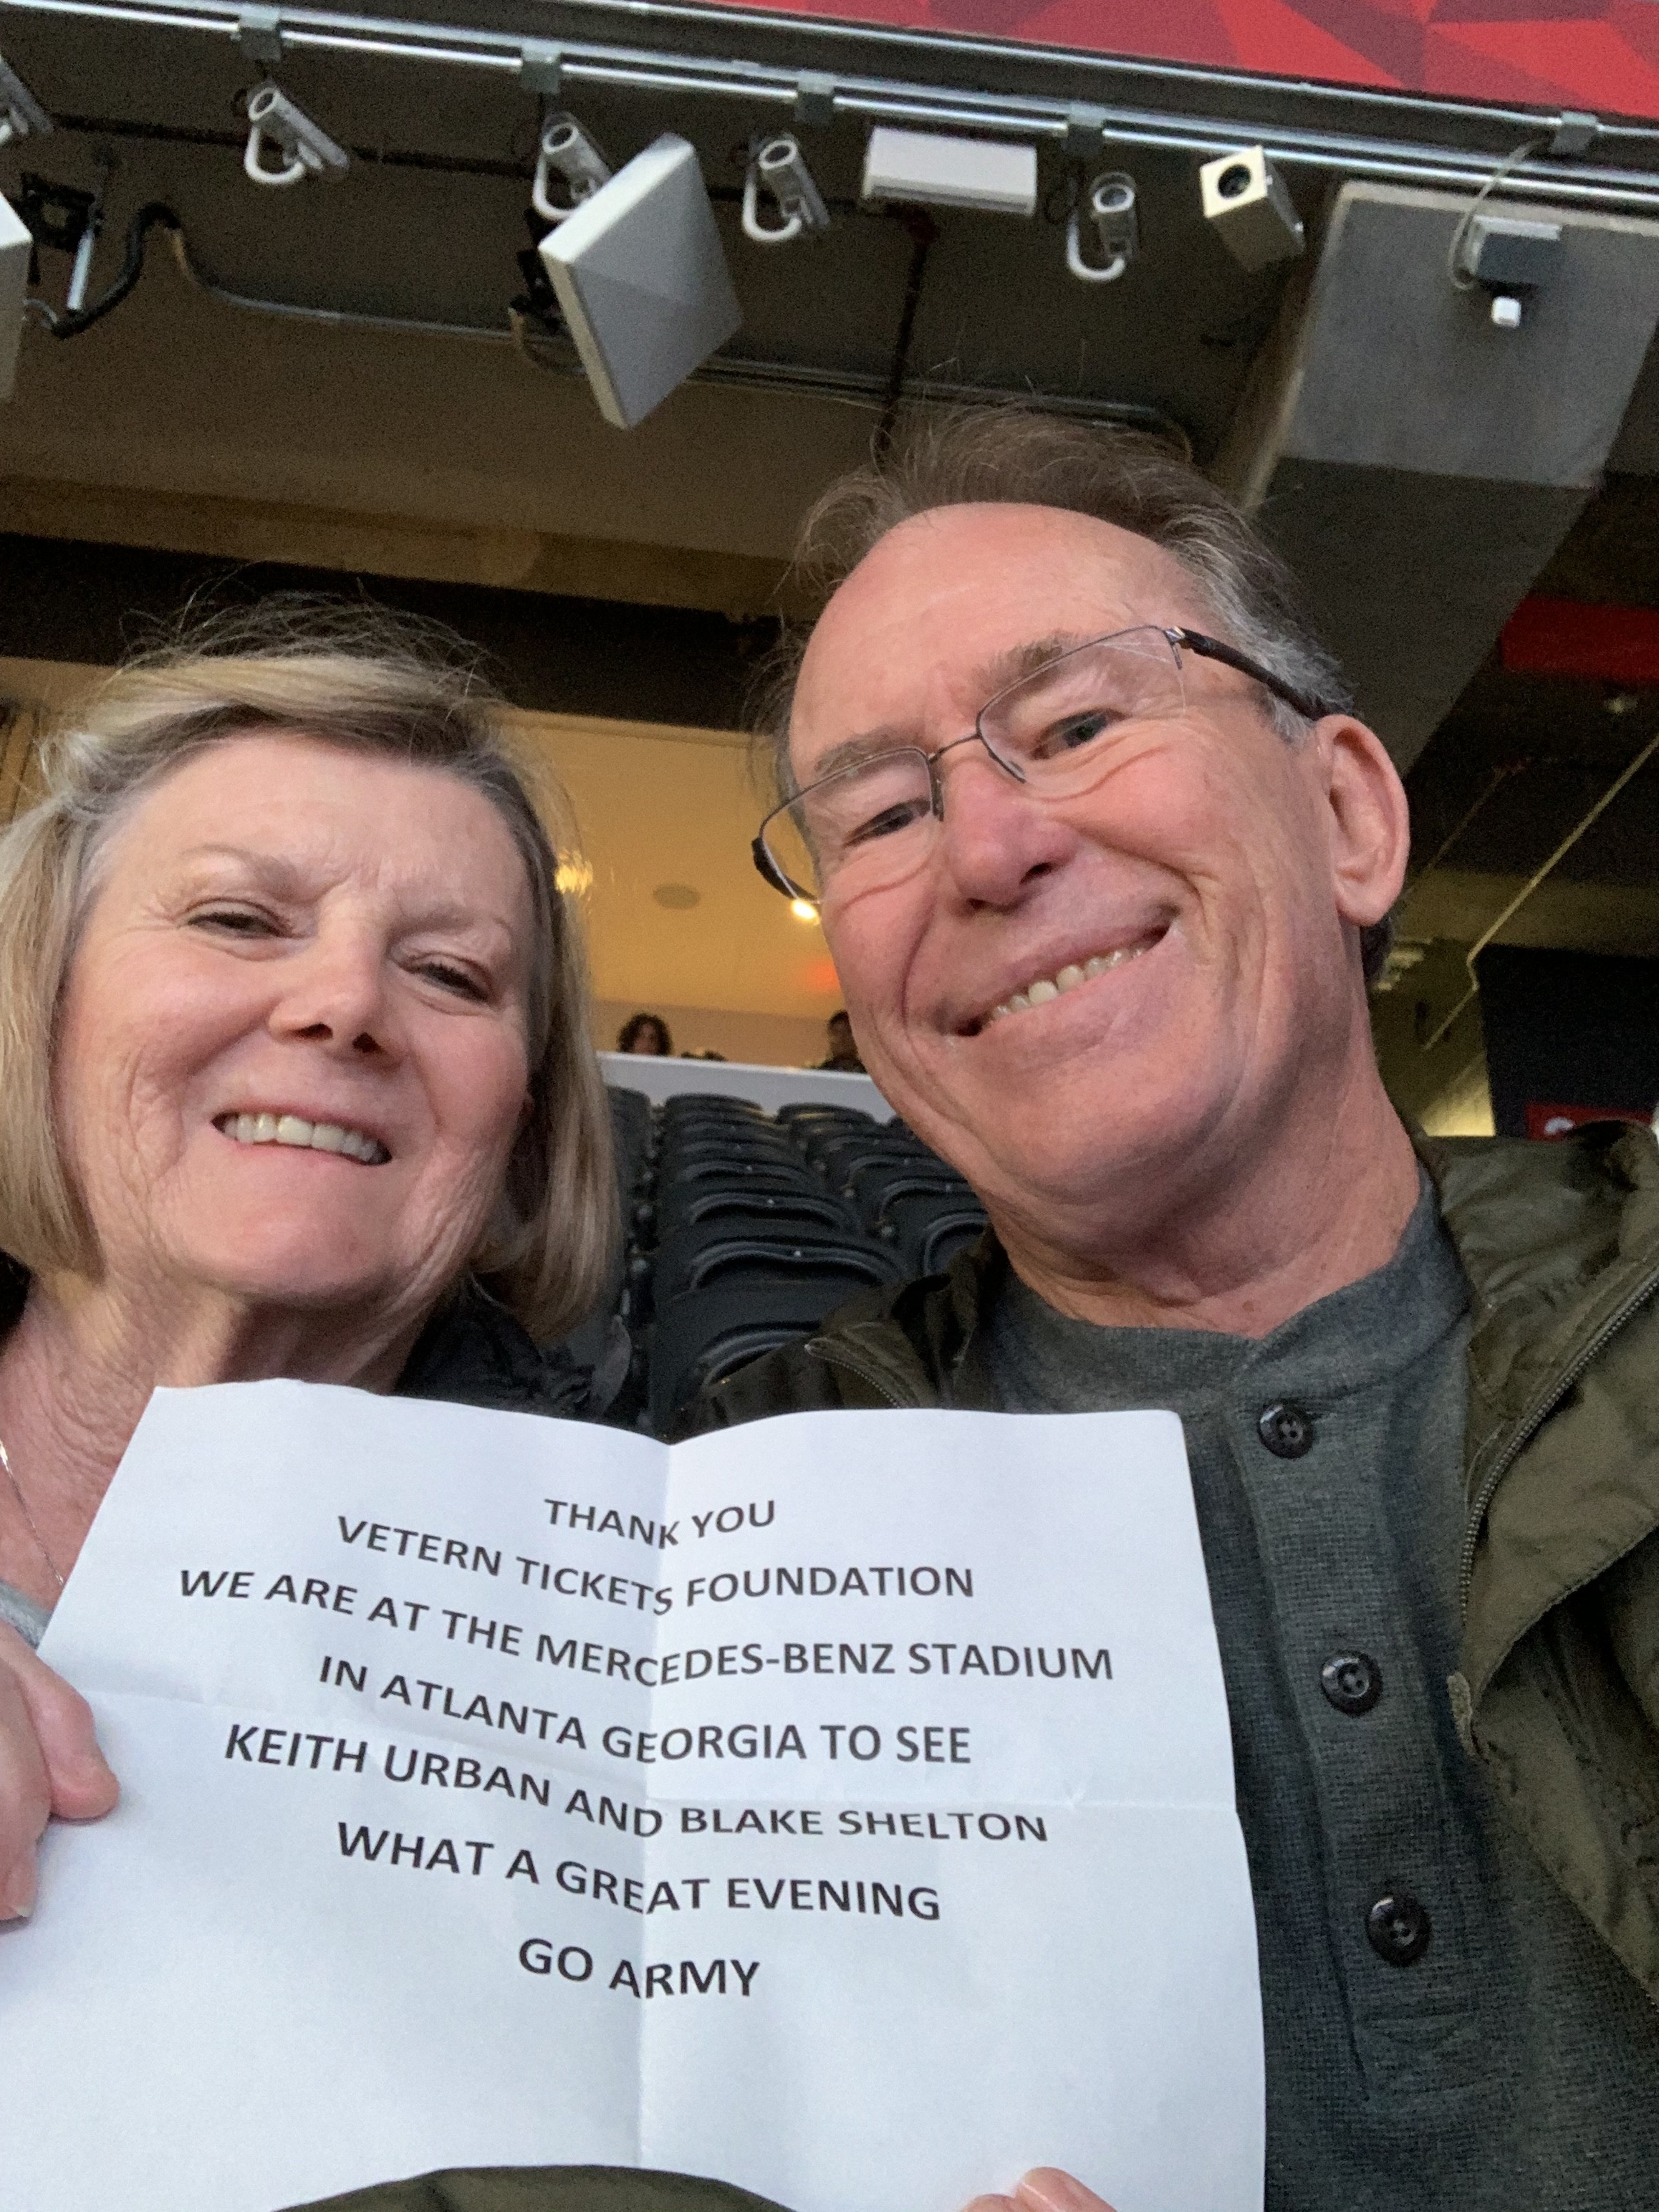 THANK YOU
VETERN TICKETS FOUNDATION
WE ARE AT THE MERCEDES-BENZ STADIUM
IN ATLANTA GEORGIA TO SEE
KEITH URBAN AND BLAKE SHELTON
WHAT A GREAT EVENING
GO ARMY